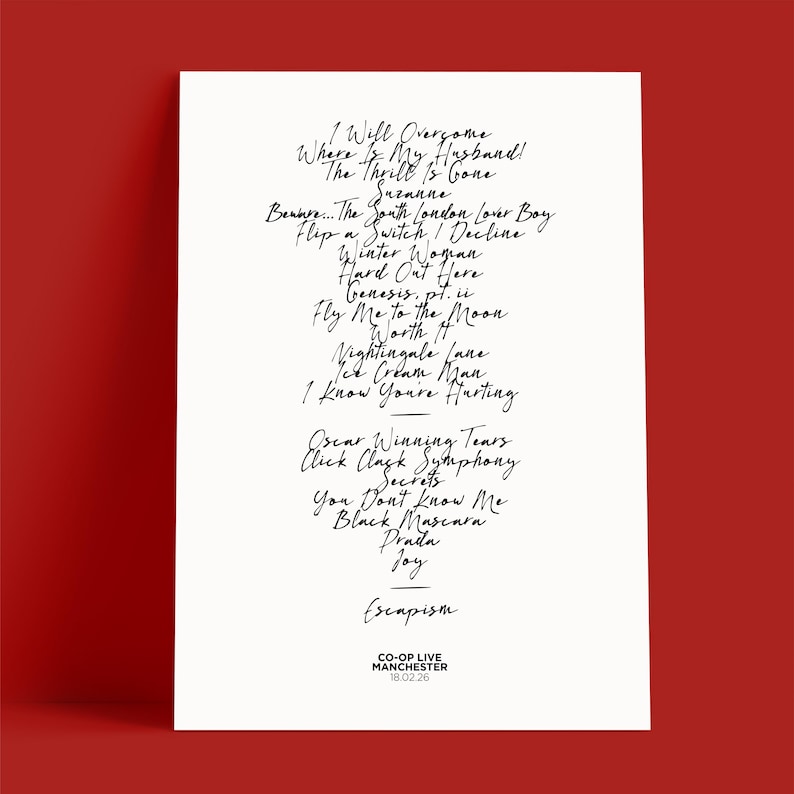 I Will Overcome
Where Is My Husband!
The Thrill Is Gone
Suzanne
Beware...The South London Lover Boy
Flip a Switch / Decline
Winter Woman
Hard Out Here
Genesis, pt. ii
Fly Me to the Moon
Worth It
Nightingale Lane
Ice Cream Man
I Know You're Hurting
Oscar Winning Tears
Click Clack Symphony
Secrets
You Don't Know Me
Black Mascara
Prada
Joy
Escapism
CO-OP LIVE
MANCHESTER
18.02.26